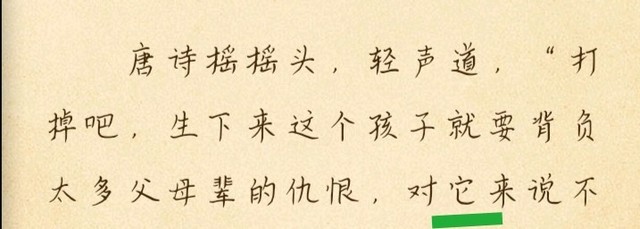 唐诗摇摇头，轻声道，“打
掉吧，生下来这个孩子就要背负
太多父母辈的仇恨，对它来说不